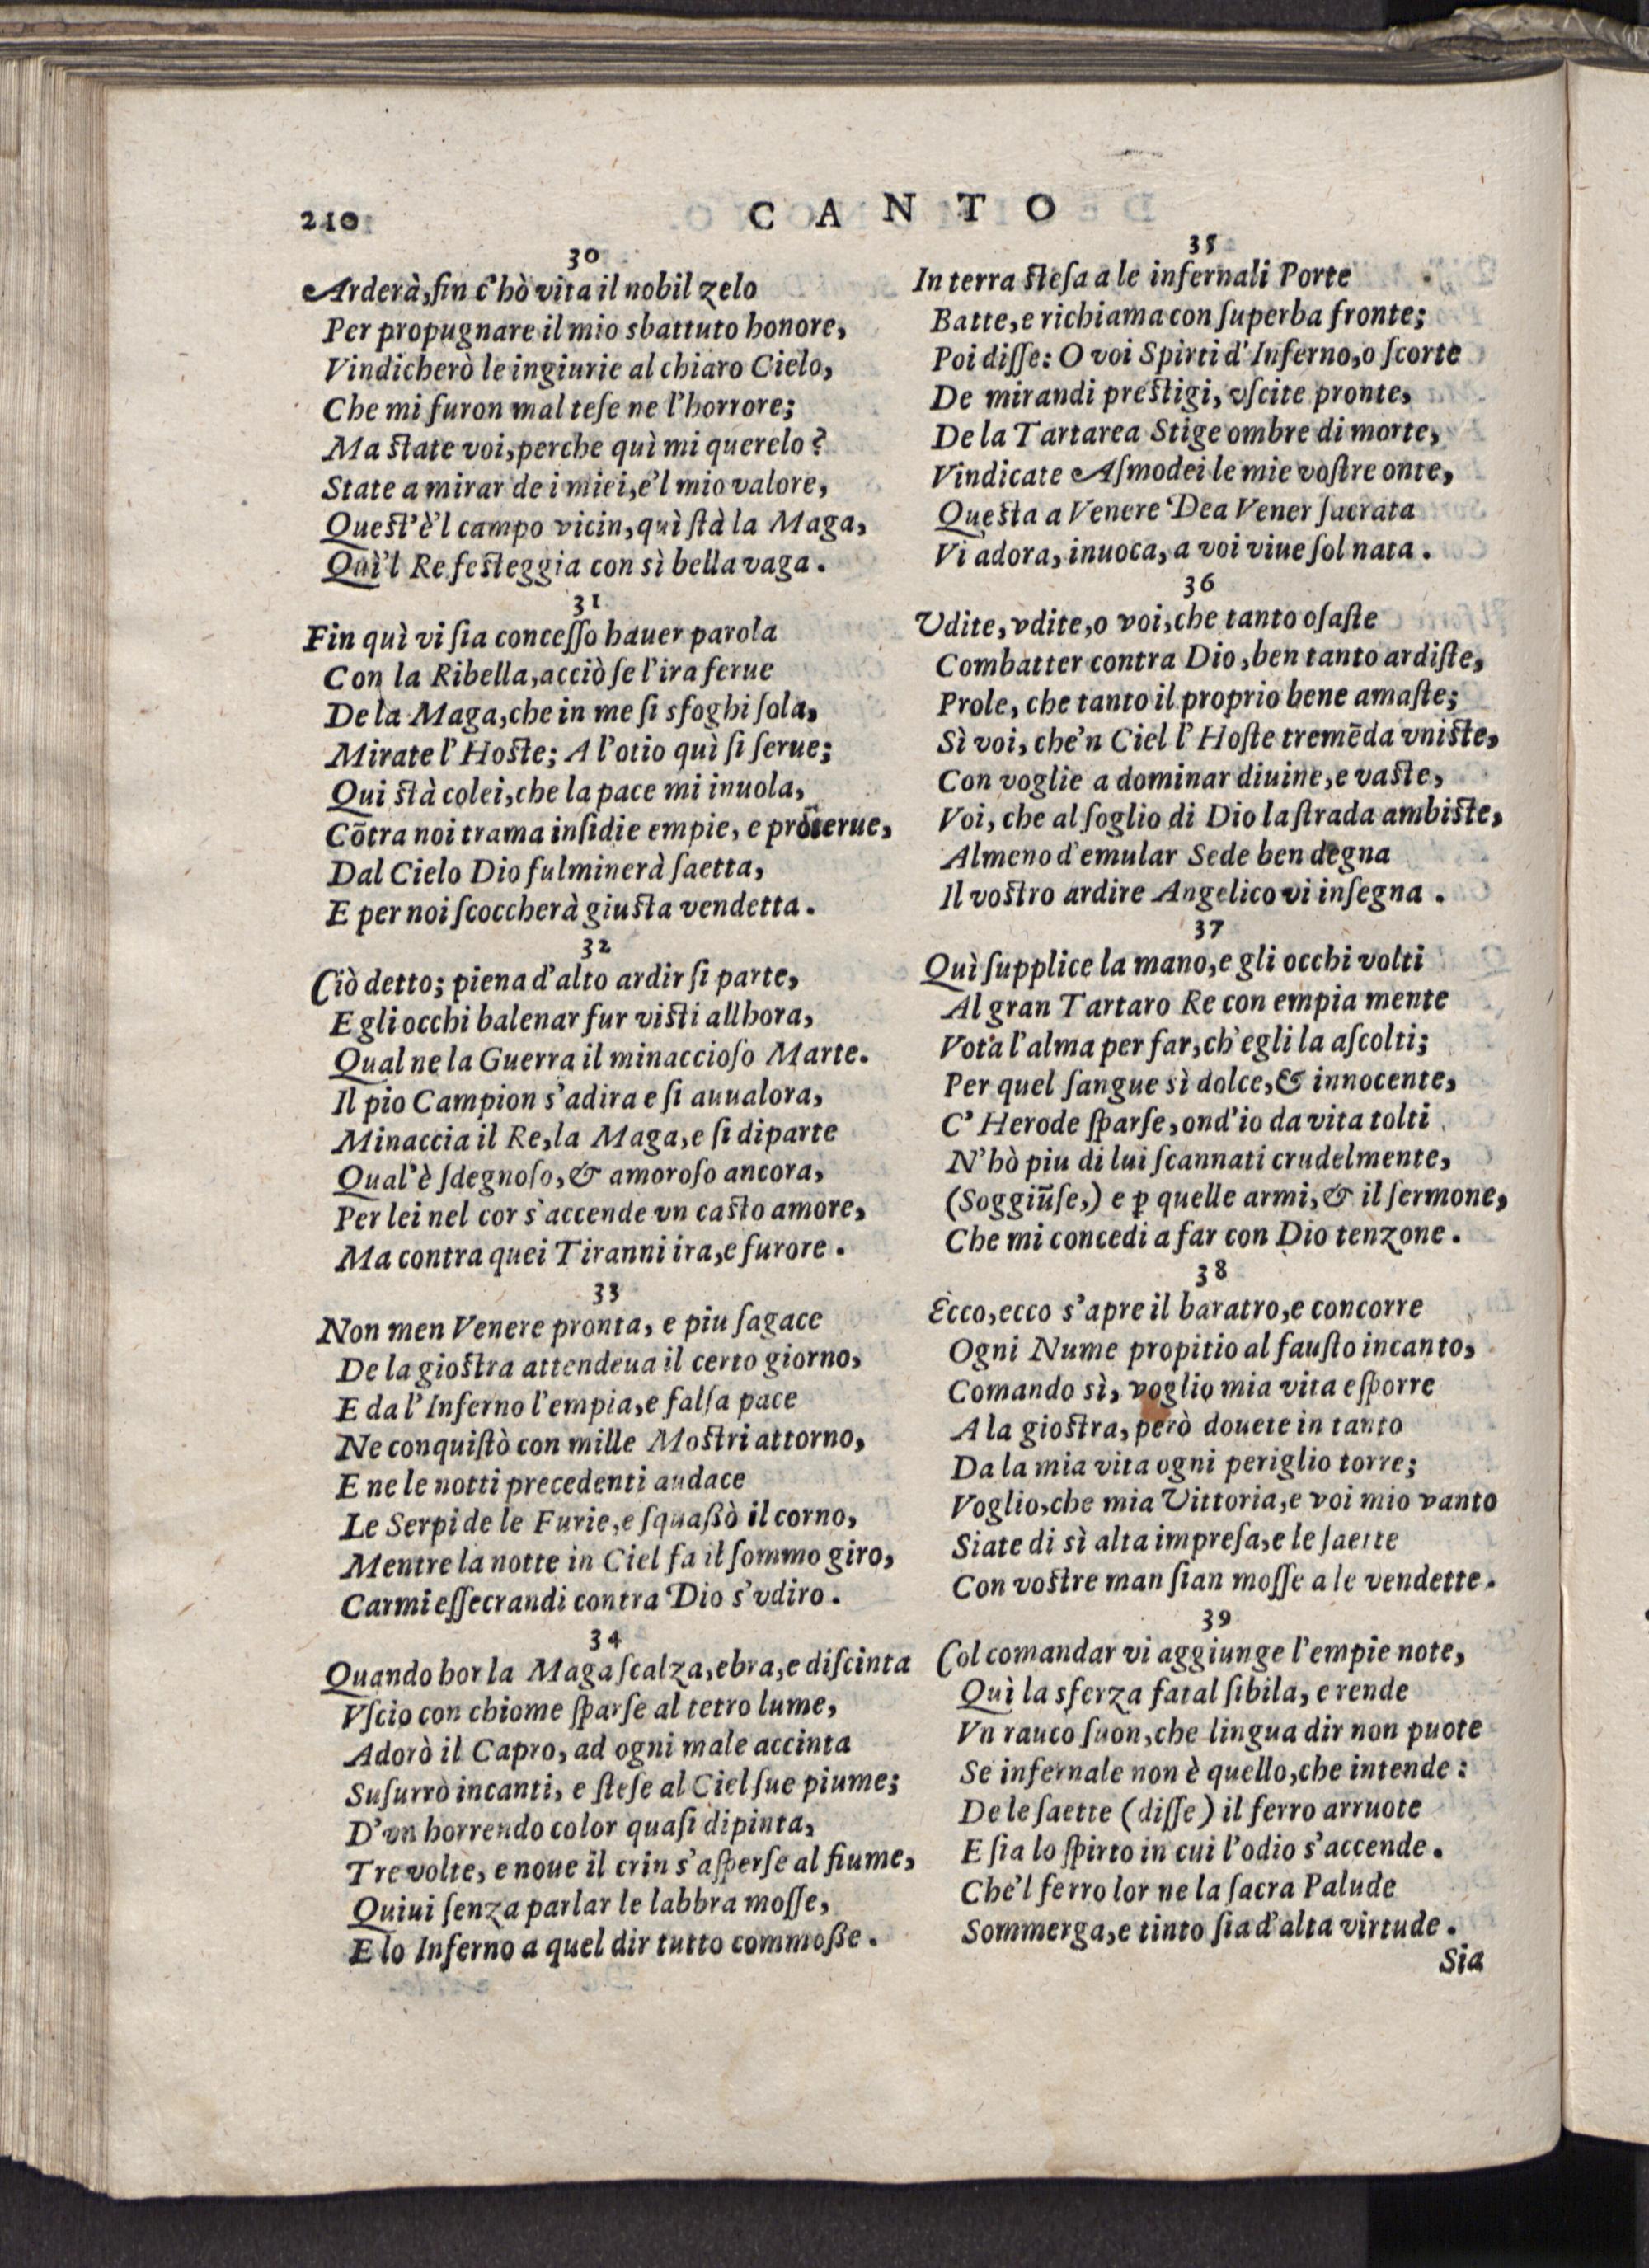 210
CANTO
30
Arderà, fin c'hò vita il nobil zelo
Per propugnare il mio sbattuto honore,
Vindicherò le ingiurie al chiaro Cielo,
Che mi furon mal teſe ne l'horrore;
Ma ſtate voi, perche quì mi querelo?
State a mirar de i miei, e'l mio valore,
Queſt'è'l campo vicin, quì ſtà la Maga,
Quì'l Re feſteggia con sì bella vaga.
31
Fin quì vi ſia conceſſo hauer parola
Con la Ribella, acciò ſe l'ira ferue
De la Maga, che in me ſi sfoghi ſola,
Mirate l'Hoſte; A l'otio quì ſi ſerue;
Qui ſtà colei, che la pace mi inuola,
Cōtra noi trama inſidie empie, e proterue,
Dal Cielo Dio fulminerà ſaetta,
E per noi ſcoccherà giuſta vendetta.
32
Ciò detto; piena d'alto ardir ſi parte,
E gli occhi balenar fur viſti allhora,
Qual ne la Guerra il minaccioſo Marte.
Il pio Campion s'adira e ſi auualora,
Minaccia il Re, la Maga, e ſi diparte
Qual'è ſdegnoſo, & amoroſo ancora,
Per lei nel cor s'accende vn caſto amore,
Ma contra quei Tiranni ira, e furore.
33
Non men Venere pronta, e piu ſagace
De la gioſtra attendeua il certo giorno,
E da l'Inferno l'empia, e falſa pace
Ne conquiſtò con mille Moſtri attorno,
E ne le notti precedenti audace
Le Serpi de le Furie, e ſquaßò il corno,
Mentre la notte in Ciel fa il ſommo giro,
Carmi eſſecrandi contra Dio s'vdiro.
34
Quando hor la Maga ſcalza, ebra, e diſcinta
Vſcio con chiome ſparſe al tetro lume,
Adorò il Capro, ad ogni male accinta
Suſurrò incanti, e ſteſe al Ciel ſue piume;
D'vn horrendo color quaſi dipinta,
Tre volte, e noue il crin s'aſperſe al fiume,
Quiui ſenza parlar le labbra moſſe,
E lo Inferno a quel dir tutto commoße.
35
In terra ſteſa a le infernali Porte
Batte, e richiama con ſuperba fronte;
Poi diſſe: O voi Spirti d'Inferno, o ſcorte
De mirandi preſtigi, vſcite pronte,
De la Tartarea Stige ombre di morte,
Vindicate Aſmodei le mie voſtre onte,
Queſta a Venere Dea Vener ſacrata
Vi adora, inuoca, a voi viue ſol nata.
36
Vdite, vdite, o voi, che tanto oſaſte
Combatter contra Dio, ben tanto ardiſte,
Prole, che tanto il proprio bene amaſte;
Sì voi, che'n Ciel l'Hoſte tremēda vniſte,
Con voglie a dominar diuine, e vaſte,
Voi, che al ſoglio di Dio la ſtrada ambiſte,
Almeno d'emular Sede ben degna
Il voſtro ardire Angelico vi inſegna.
37
Quì ſupplice la mano, e gli occhi volti
Al gran Tartaro Re con empia mente
Vota l'alma per far, ch'egli la aſcolti;
Per quel ſangue sì dolce, & innocente,
C'Herode ſparſe, ond'io da vita tolti
N'hò piu di lui ſcannati crudelmente,
(Soggiūſe,) e ꝑ quelle armi, & il ſermone,
Che mi concedi a far con Dio tenzone.
38
Ecco, ecco s'apre il baratro, e concorre
Ogni Nume propitio al fauſto incanto,
Comando sì, voglio mia vita eſporre
A la gioſtra, però douete in tanto
Da la mia vita ogni periglio torre;
Voglio, che mia Vittoria, e voi mio vanto
Siate di sì alta impreſa, e le ſaette
Con voſtre man ſian moſſe a le vendette.
39
Col comandar vi aggiunge l'empie note,
Quì la sferza fatal ſibila, e rende
Vn rauco ſuon, che lingua dir non puote
Se infernale non è quello, che intende:
De le ſaette (diſſe) il ferro arruote
E ſia lo ſpirto in cui l'odio s'accende.
Che'l ferro lor ne la ſacra Palude
Sommerga, e tinto ſia d'alta virtude.
Sia